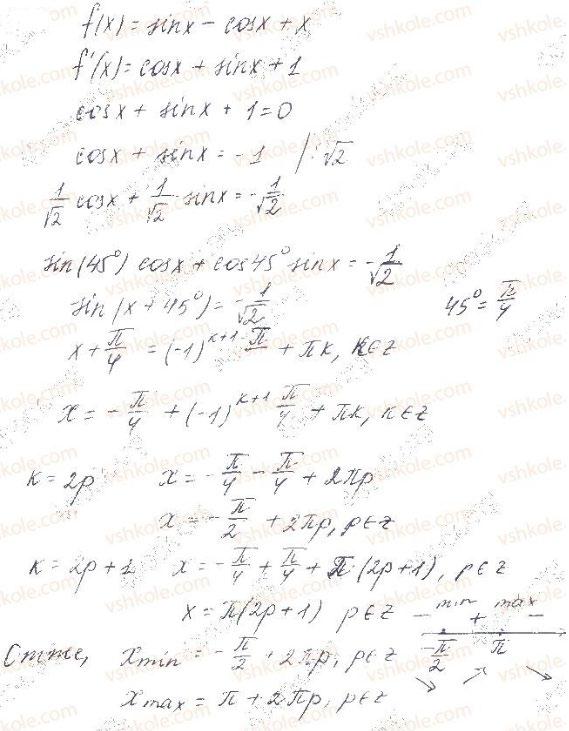 f(x) = sinx - cosx + x
f'(x) = cosx + sinx + 1
cosx + sinx + 1 = 0
cosx + sinx = -1 | : √2
1/√2 cosx + 1/√2 sinx = -1/√2
sin(45°) cosx + cos45° sinx = -1/√2
sin(x + 45°) = -1/√2
45° = π/4
x + π/4 = (-1)^(k+1) π/4 + πk, k∈z
x = -π/4 + (-1)^(k+1) π/4 + πk, k∈z
k = 2p x = -π/4 - π/4 + 2πp
x = -π/2 + 2πp, p∈z
k = 2p+1 x = -π/4 + π/4 + π(2p+1), p∈z
x = π(2p+1) p∈z
- min + max -
-π/2 π
Отже, xmin = -π/2 + 2πp, p∈z
xmax = π + 2πp, p∈z
vshkole.com